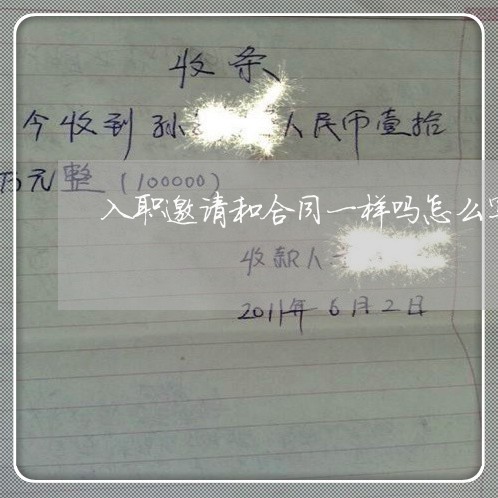 收条
今收到孙 人民币壹拾
万元整(100000)
入职邀请和合同一样吗怎么
收款人
2011年6月2日